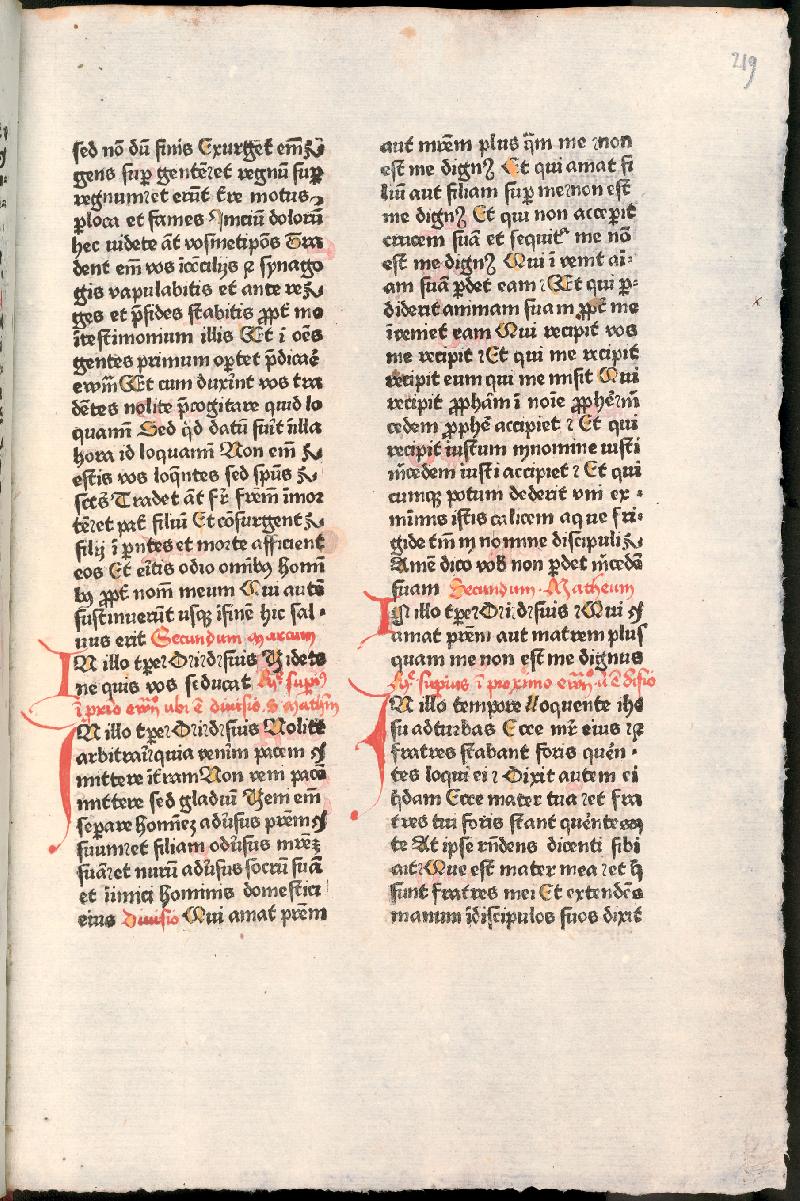 219
sed nō dū finis Exurget em̄
gens sup gentē et regnū sup
regnum et erūt t̄re motus
p loca et fames Iniciū dolorū
hec uidete āt vosmetip̄os Tra
dent em̄ vos ī cōcilijs et synago
gis vapulabitis et ante re
ges et p̄sides stabitis ꝓpt̄ me
ī testimonium illis Et ī oēs
gentes primum oꝑtet p̄dicaē
ewm̄ Et cum duxīnt vos tra
dētes nolite p̄cogitare quid lo
quamī Sed qd datū fuīt ī illa
hora id loquamī Non em̄
estis vos loqntes sed spūs
sctūs Tradet āt fr̄ frēm ī mor
tē et pat̄ filiū Et cōsurgent
filij ī pntes et morte afficient
eos Et eītis odio omībꝰ homī
bꝰ ꝓpt̄ nom̄ meum Qui autē
sustinuerūt usqꝫ ī finē hic sal
uus erit Secundum Marcum
IN illo tꝑe Dixit ihsus Videte
ne quis vos seducat Rꝰ supiꝰ
ī prio ewm̄ ubi ē diuisio S Mathm̄
IN illo tꝑe Dixit ihsus Nolite
arbitrari quia venīm pacem
mittere ī tram Non veni pacē
mittere sed gladiū Veni em̄
separe homīeꝫ adūsus prēm
suum et filiam adūsus mrēꝫ
suā et nurū adūsus socrū suā
et īimici hominis domestici
eius Diuisio Qui amat prēm
aut mrēm plus qm̄ me non
est me dignꝰ Et qui amat fi
liū aut filiam sup me non est
me dignꝰ Et qui non accepit
crucem suā et sequit me nō
est me dignꝰ Qui ī venit ai
am suā ꝑdet eam Et qui ꝑ
diderit animam suam ꝓpt̄ me
īveniet eam Qui recipit vos
me recipit Et qui me recipit
recipit eum qui me misit Qui
recipit ꝓpham ī noīe ꝓphē m̄
cedem ꝓphē accipiet Et qui
recipit iustum in nomine iusti
m̄cedem iusti accipiet Et qui
cumqꝫ potum dederit vni ex
minimis istis calicem aque fri
gide tm̄ in nomine discipuli
Amē dico vob̄ non ꝑdet m̄cedē
suam Secundum Matheum
IN illo tꝑe Dixit ihsus Qui
amat prēm aut matrem plus
quam me non est me dignus
Rꝰ supius ī proximo ewm̄ u ē diuisio
IN illo tempore Loquente ihe
su ad turbas Ecce mr̄ eius et
fratres stabant foris queren
tes loqui ei Dixit autem ei
qdam Ecce mater tua et fra
tres tui foris stant querentes
te At ipse rn̄dens dicenti sibi
ait Que est mater mea et q
sunt fratres mei Et extendēs
manum ī discipulos suos dixit